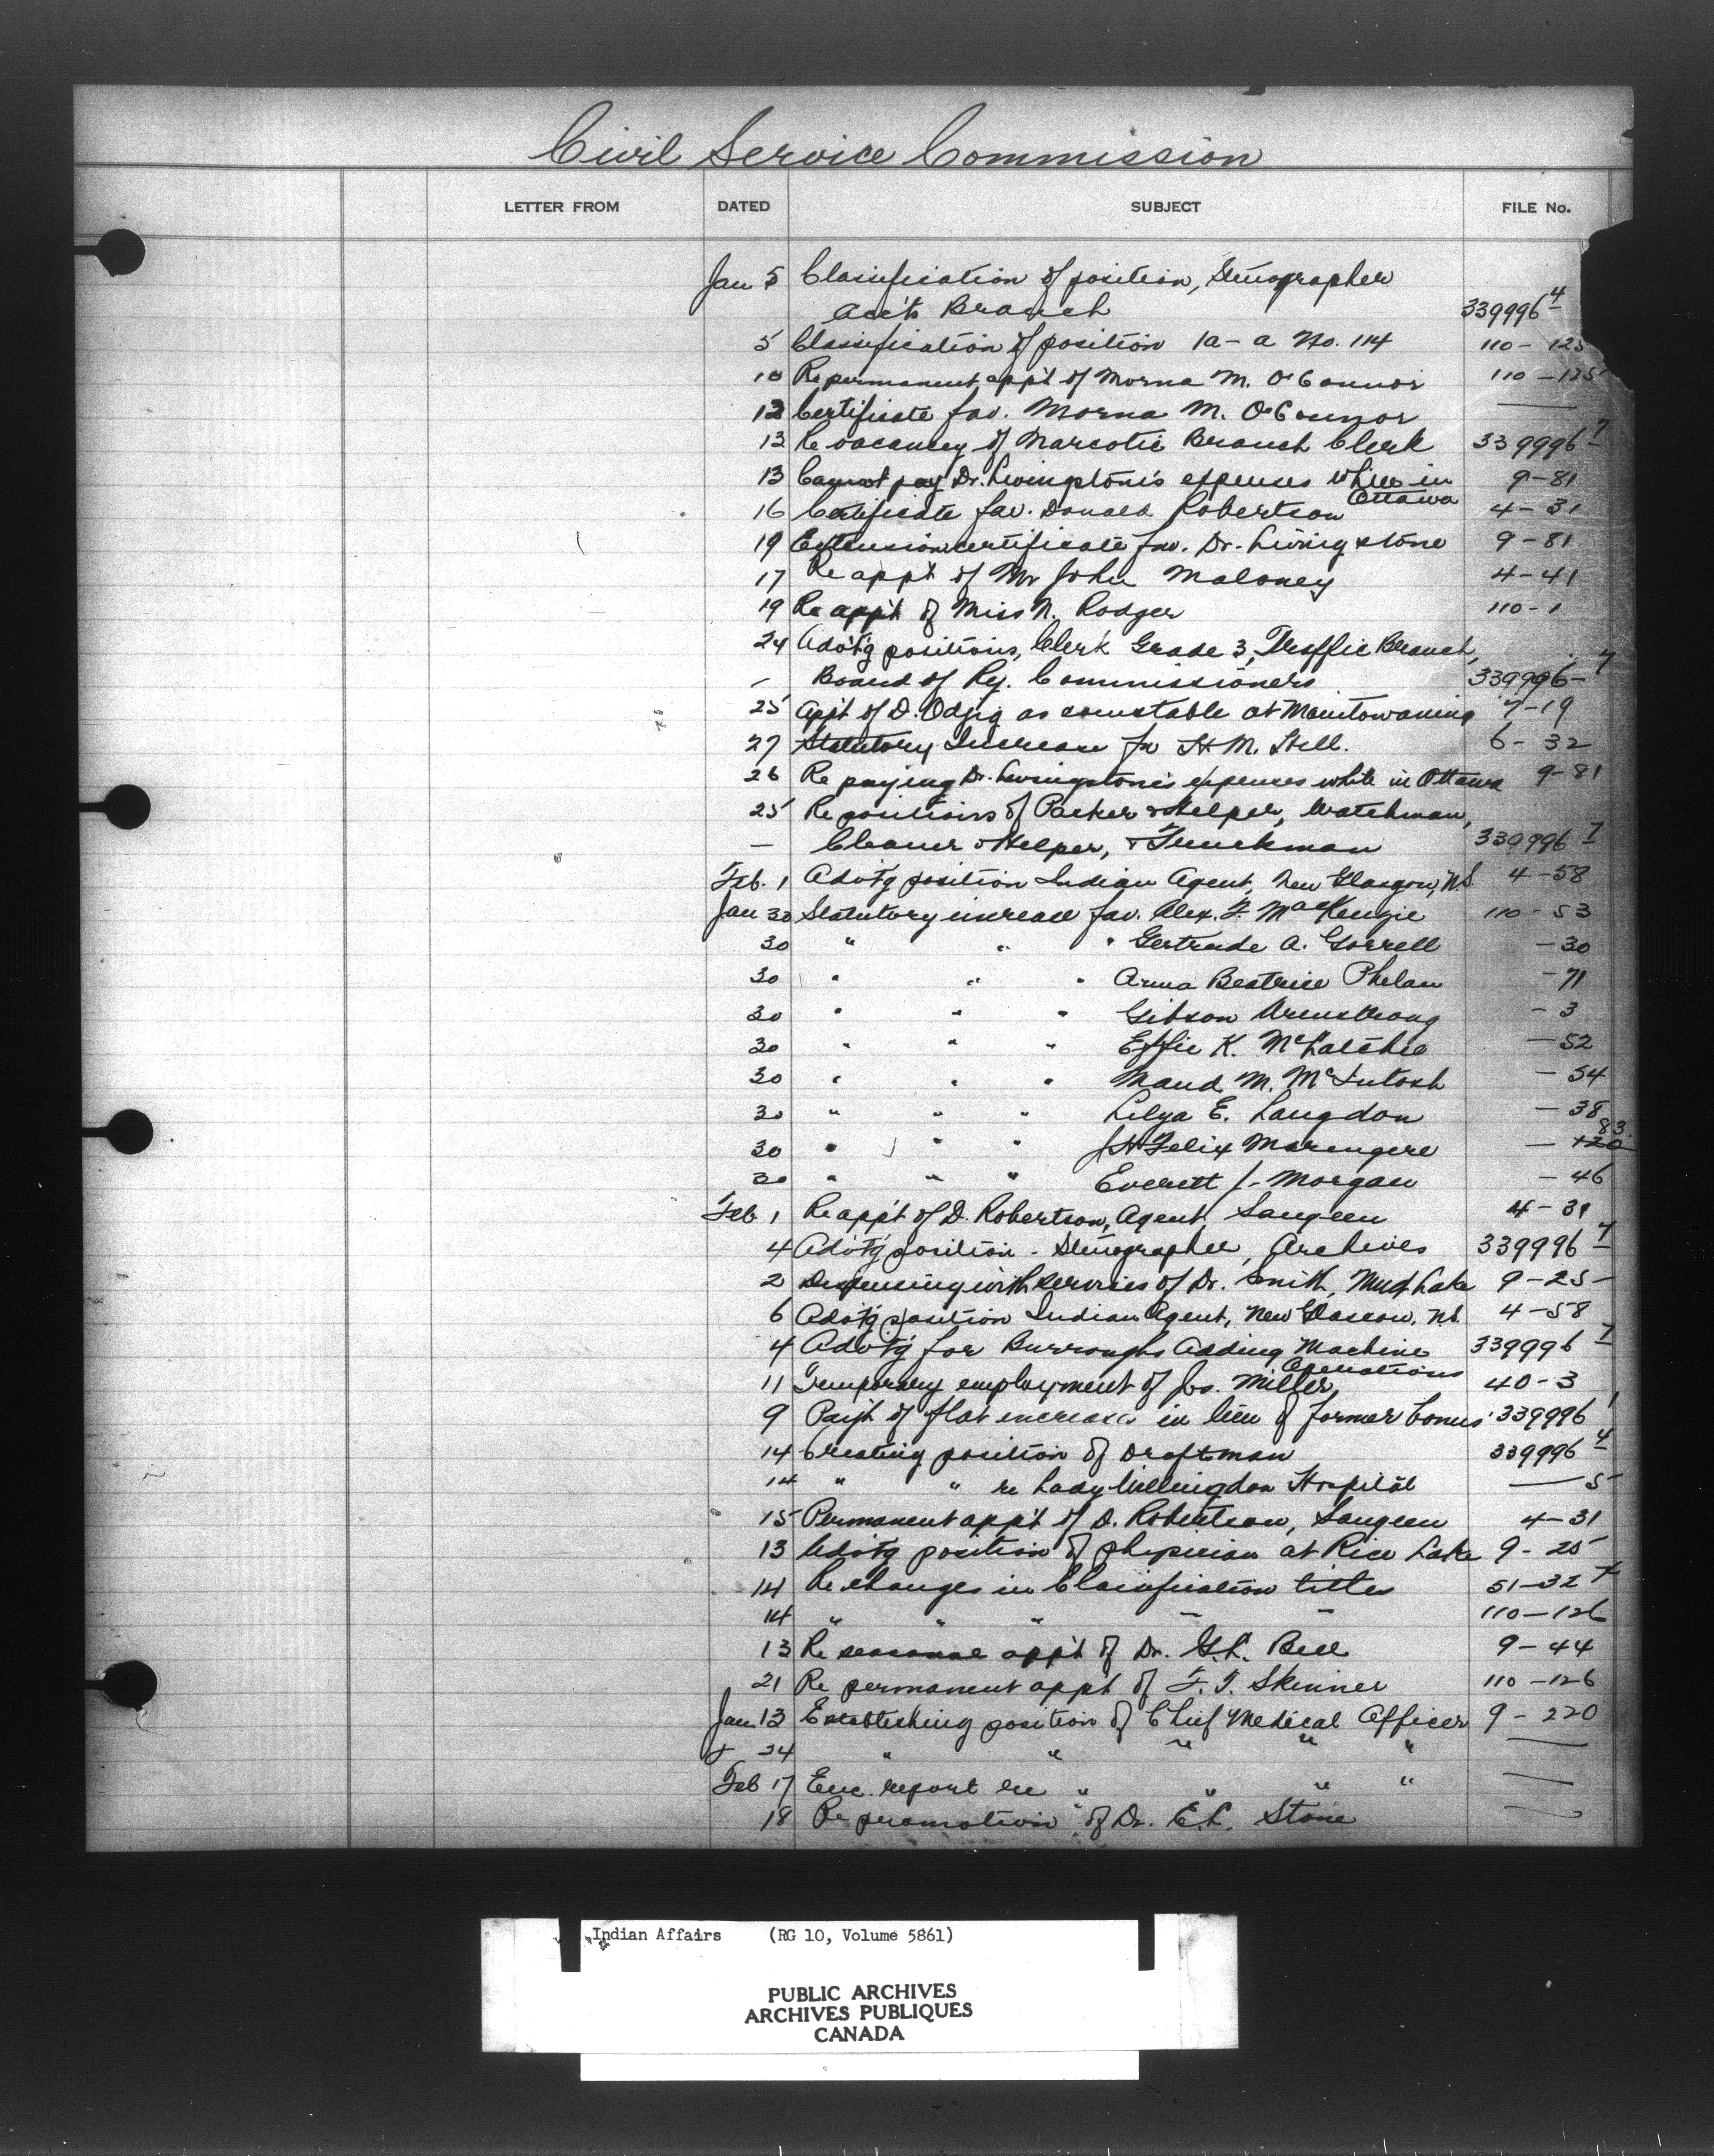 Civil Service Commission
LETTER FROM DATED SUBJECT FILE No.
Jan 5 Classification of position, Stenographer
Acc'ts Branch 339996 4
5 Classification of position 1a-a No. 114 110 - 125
10 Re permanent app't of Morna M. O'Connor 110 - 125
12 Certificate fav. Morna M. O'Connor —
12 Re vacancy of Narcotic Branch Clerk 339996 7
13 Cannot pay Dr. Livingstone's expenses while in Ottawa 9-81
16 Certificate fav. Donald Robertson 4-31
19 Extension certificate fav. Dr. Livingstone 9-81
17 Re app't of Mr John Maloney 4-41
19 Re app't of Miss N. Rodger 110-1
24 Advt'g positions, Clerk Grade 3, Traffic Branch,
— Board of Ry. Commissioners 339996 - 7
25 App't of D. Odjig as constable at Manitowaning 7-19
27 Statutory Increase fav H M. Hell. 6- 32
26 Re paying Dr. Livingstone's expenses while in Ottawa 9-81
25 Re positions of Packer & Helper, Watchman,
— Cleaner & Helper, & Truckman 339996 7
Feb. 1 Advt'g position Indian Agent, New Glasgow, N.S. 4-58
Jan 30 Statutory increase fav. Alex. F. MacKenzie 110-53
30 " " " Gertrude A. Gorrell -30
30 " " " Anna Beatrice Phelan -71
30 " " " Gibson Armstrong -3
30 " " " Effie K. McLatchie -52
30 " " " Maud M. McIntosh -54
30 " " " Lilya E. Langdon -38
30 " " " J H Felix Marengere - 120 83
30 " " " Everett J. Morgan -46
Feb. 1 Re app't of D. Robertson, Agent, Saugeen 4-31
4 Advt'g position - Stenographer, Archives 339996 7
2 Dispensing with services of Dr. Smith, Mud Lake 9-25
6 Advt'g position Indian Agent, New Glascow, N.S. 4-58
4 Advt'g for Burroughs Adding Machine Operations 339996 7
11 Temporary employment of Jos. Miller 40-3
9 Pay't of flat increase in lieu of former bonus 339996 1
14 Creating position of Draftman 339996 4
14 " " re Lady Willingdon Hospital — 5
15 Permanent app't of D. Robertson, Saugeen 4-31
13 Advt'g position of physician at Rice Lake 9-25
14 Re changes in Classification titles 51-32
14 " " " " 110-126
13 Re seasonal app't of Dr. G.L. Bell 9-44
21 Re permanent appt of F. T. Skinner 110-126
Jan. 13 Establishing position of Chief Medical Officer 9-220
& 24 " " " " " —
Feb 17 Enc. report re " " " " —
18 Re promotion of Dr. E.L. Stone —
Indian Affairs (RG 10, Volume 5861)
PUBLIC ARCHIVES
ARCHIVES PUBLIQUES
CANADA